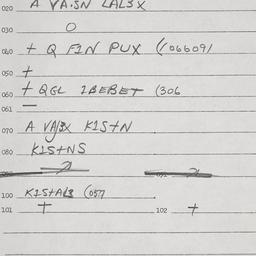 020 A VA.SN LAL3X
030 O
040 + Q FIN PUX (1066091
050 +
060 + QGL IBEBET (306
061 —
070 A VA/3X K1S+N
080 K1S+NS
100 K1S+AL3 (057
101 + 102 +